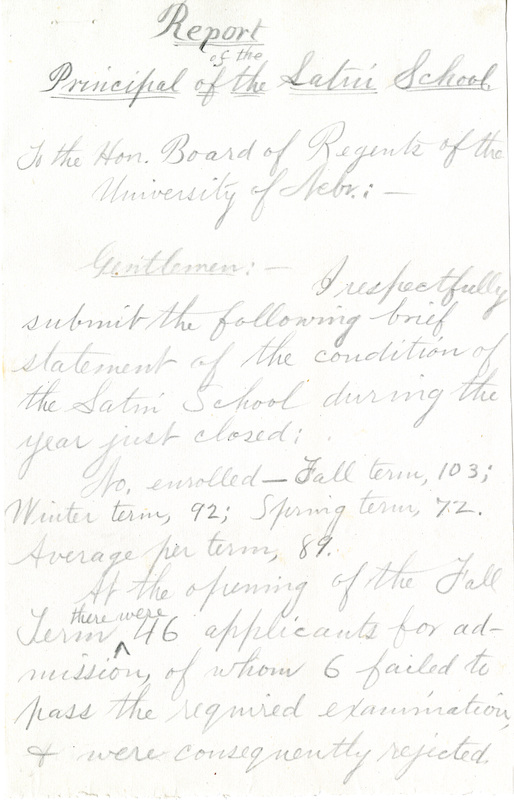 Report
of the
Principal of the Latin School
To the Hon. Board of Regents of the
University of Nebr.: —
Gentlemen: —
I respectfully
submit the following brief
statement of the condition of
the Latin School during the
year just closed:
No. enrolled — Fall term, 103;
Winter term, 92; Spring term, 72.
Average per term, 89.
At the opening of the Fall
Term ^there were 46 applicants for ad-
mission, of whom 6 failed to
pass the required examination,
& were consequently rejected.